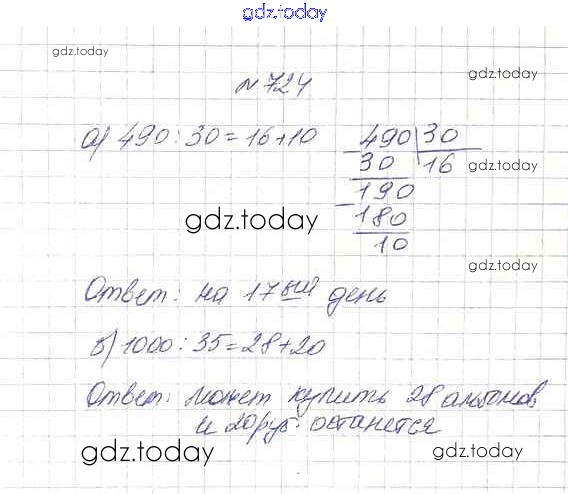 gdz.today
gdz.today
gdz.today
№ 724
а) 490 : 30 = 16 + 10
490 30
30 16
190
180
10
gdz.today
gdz.today
gdz.today
Ответ: на 17ый день
б) 1000 : 35 = 28 + 20
Ответ: может купить 28 альбомов
и 20 руб. останется
gdz.today
gdz.today